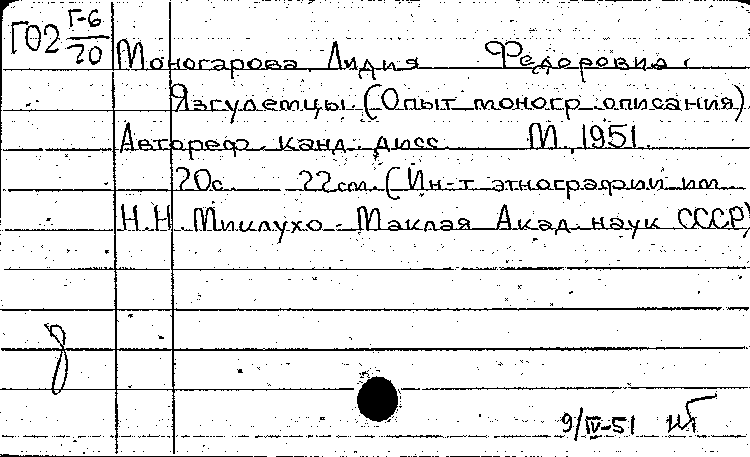 Г02 Г-6/20
Моногарова Лидия Федоровна.
Язгулемцы. (Опыт моногр. описания)
Автореф. канд. дисс. М., 1951.
20с. 22см. (Ин-т этнографии им.
Н.Н. Миклухо-Маклая Акад. наук СССР)
9/IV-51